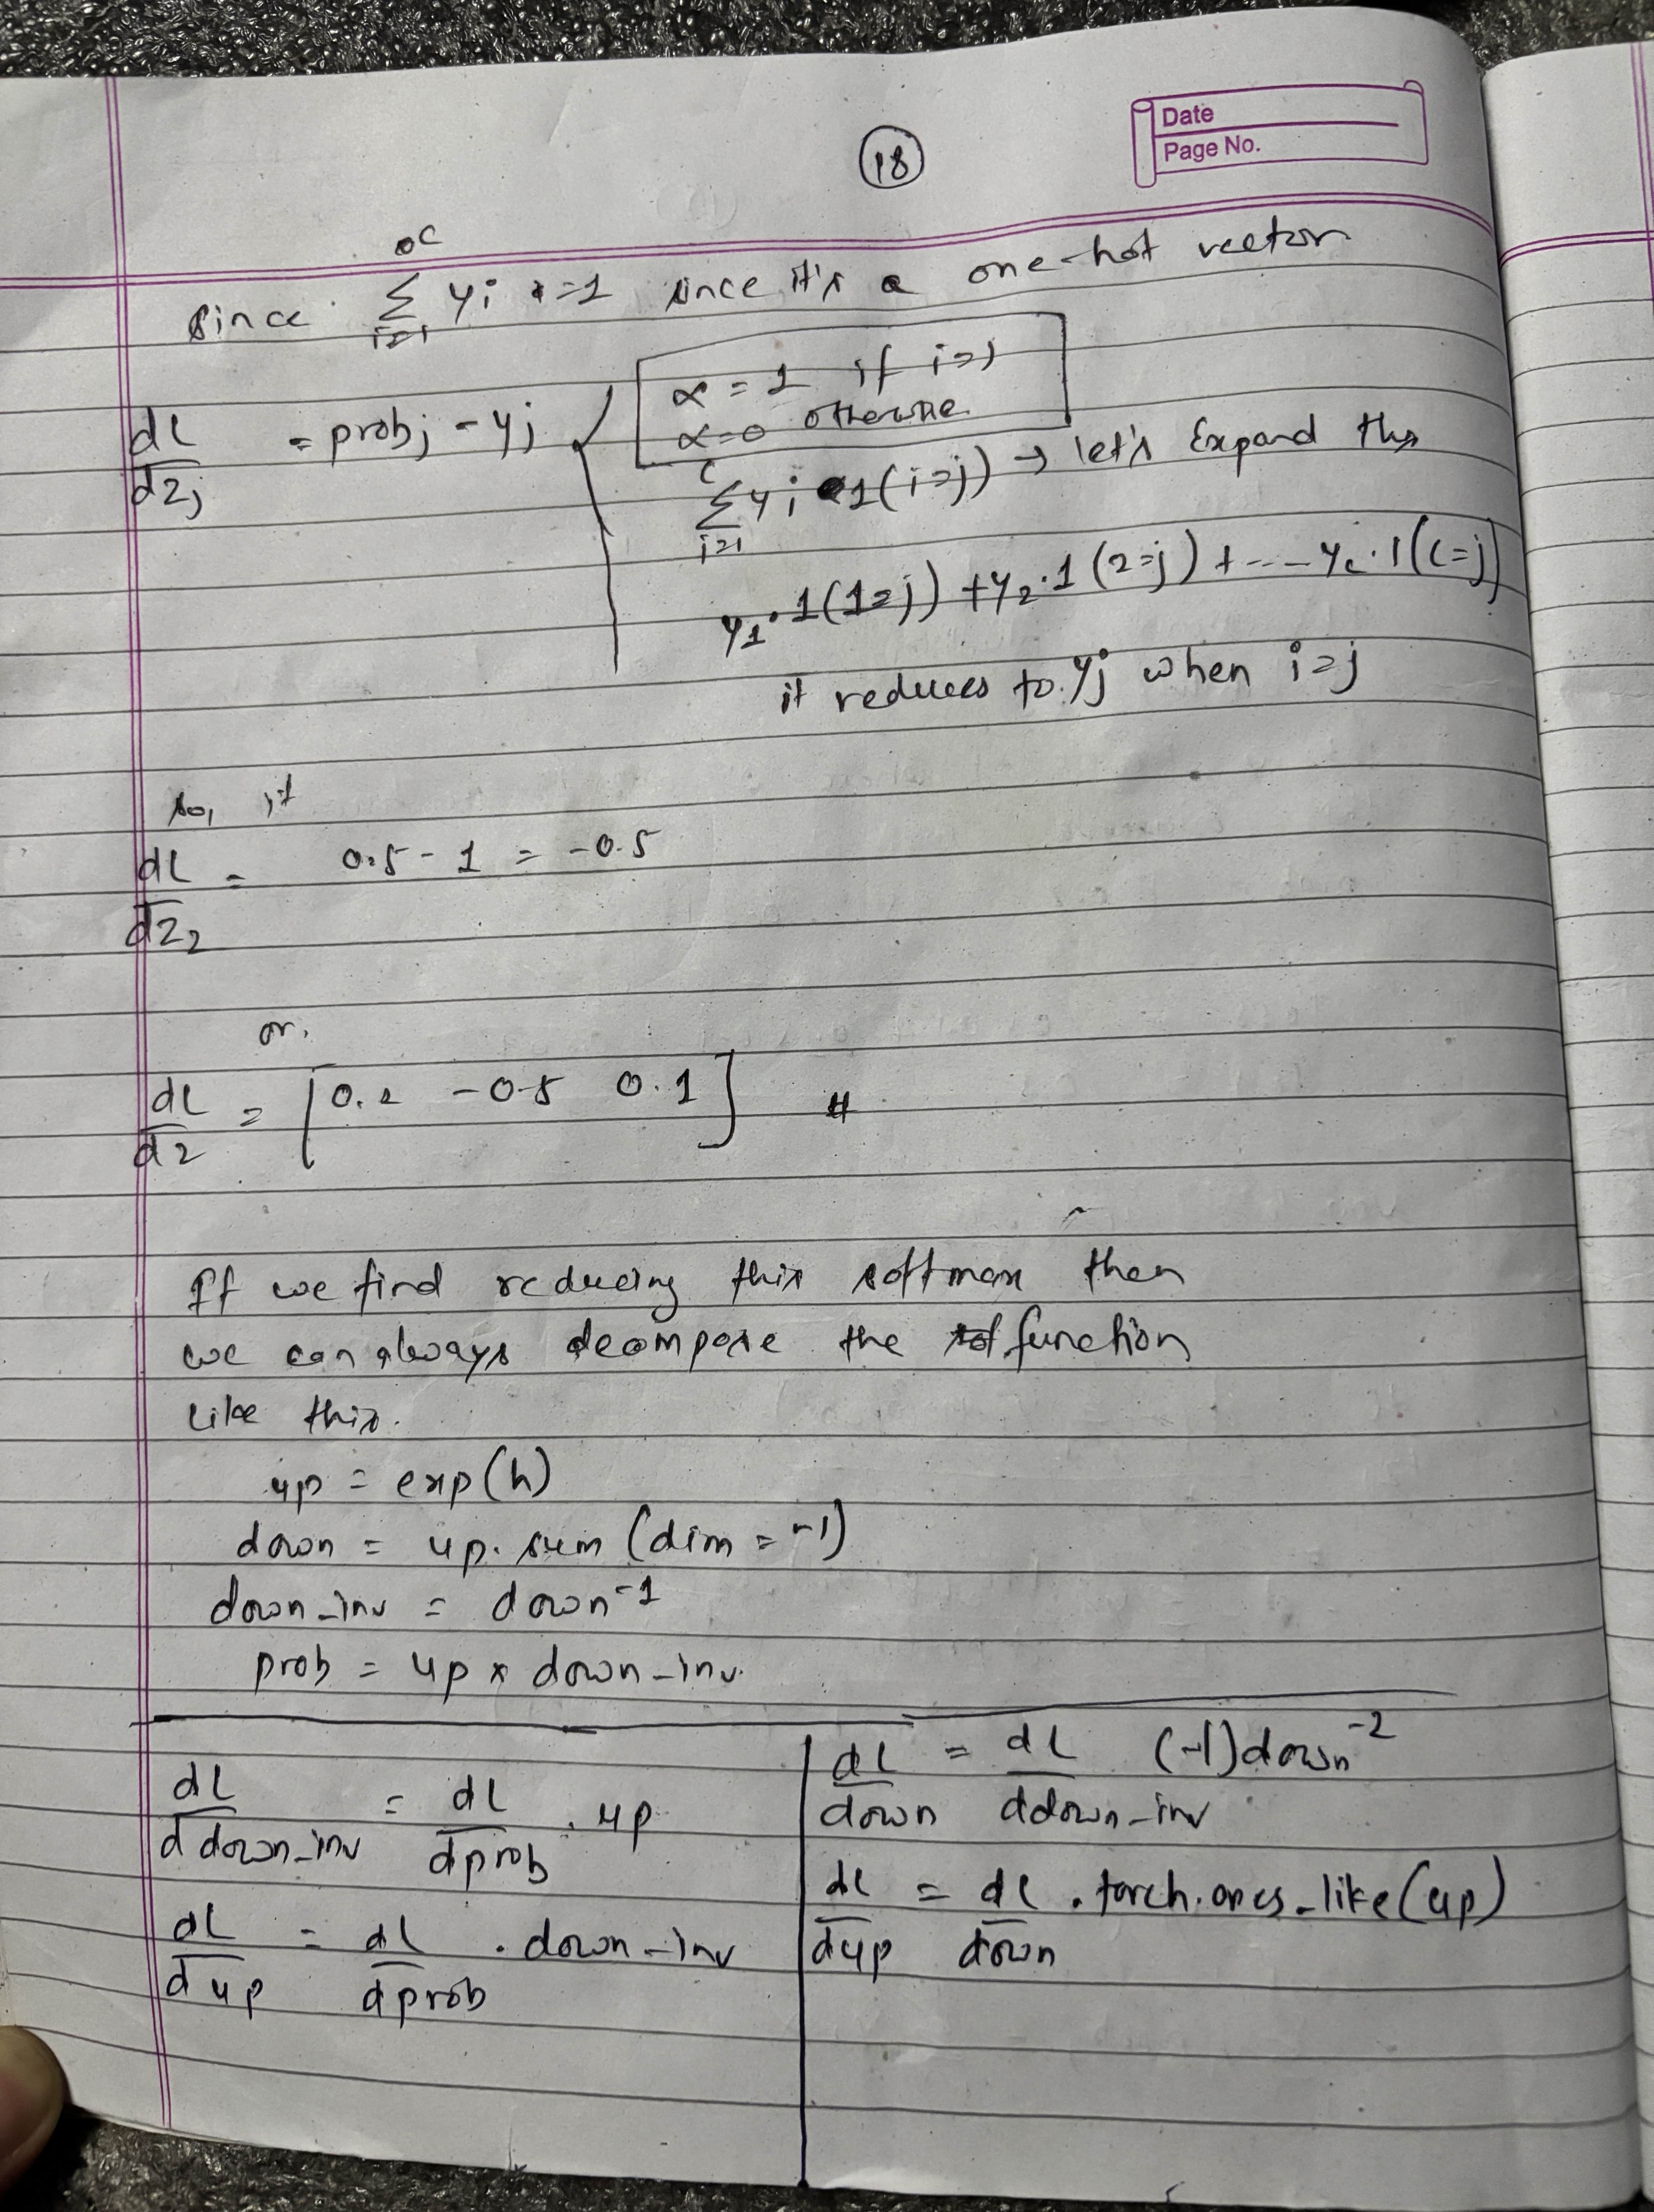 Date
Page No.
18
since Σ_{i=1}^{C} yi = 1 since it's a one-hot vector
dL/dzj = probj - yj
α = 1 if i=j
α=0 otherwise
Σ_{i=1}^{C} yi 1(i=j) → let's Expand this
y1·1(1=j) + y2·1(2=j) + --- yc·1(c=j)
it reduces to yj when i=j
so, if
dL/dz2 = 0.5 - 1 = -0.5
or,
dL/dz = [0.2 -0.5 0.1] #
If we find reducing this softmax then
we can always decompose the function
like this.
up = exp(h)
down = up.sum(dim=-1)
down_inv = down^-1
prob = up x down_inv.
dL/d down_inv = dL/dprob . up
dL/dup = dL/dprob . down_inv
dL/down = dL/ddown_inv (-1)down^-2
dL/dup = dL/down . torch.ones_like(up)